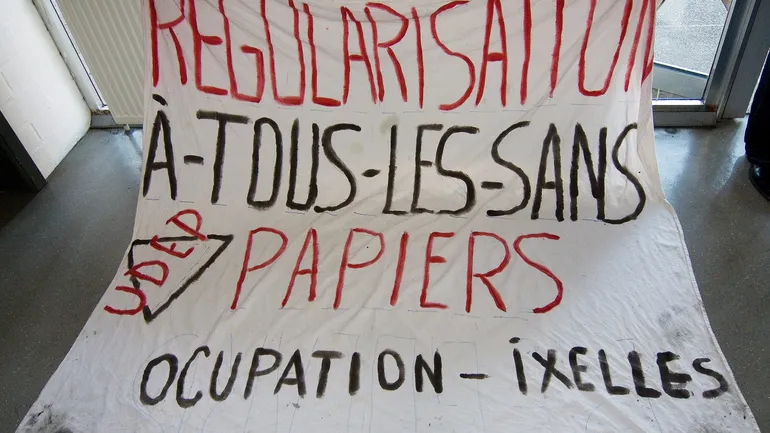 REGULARISATION
À-TOUS-LES-SANS
UDEP
PAPIERS
OCUPATION-iXELLES